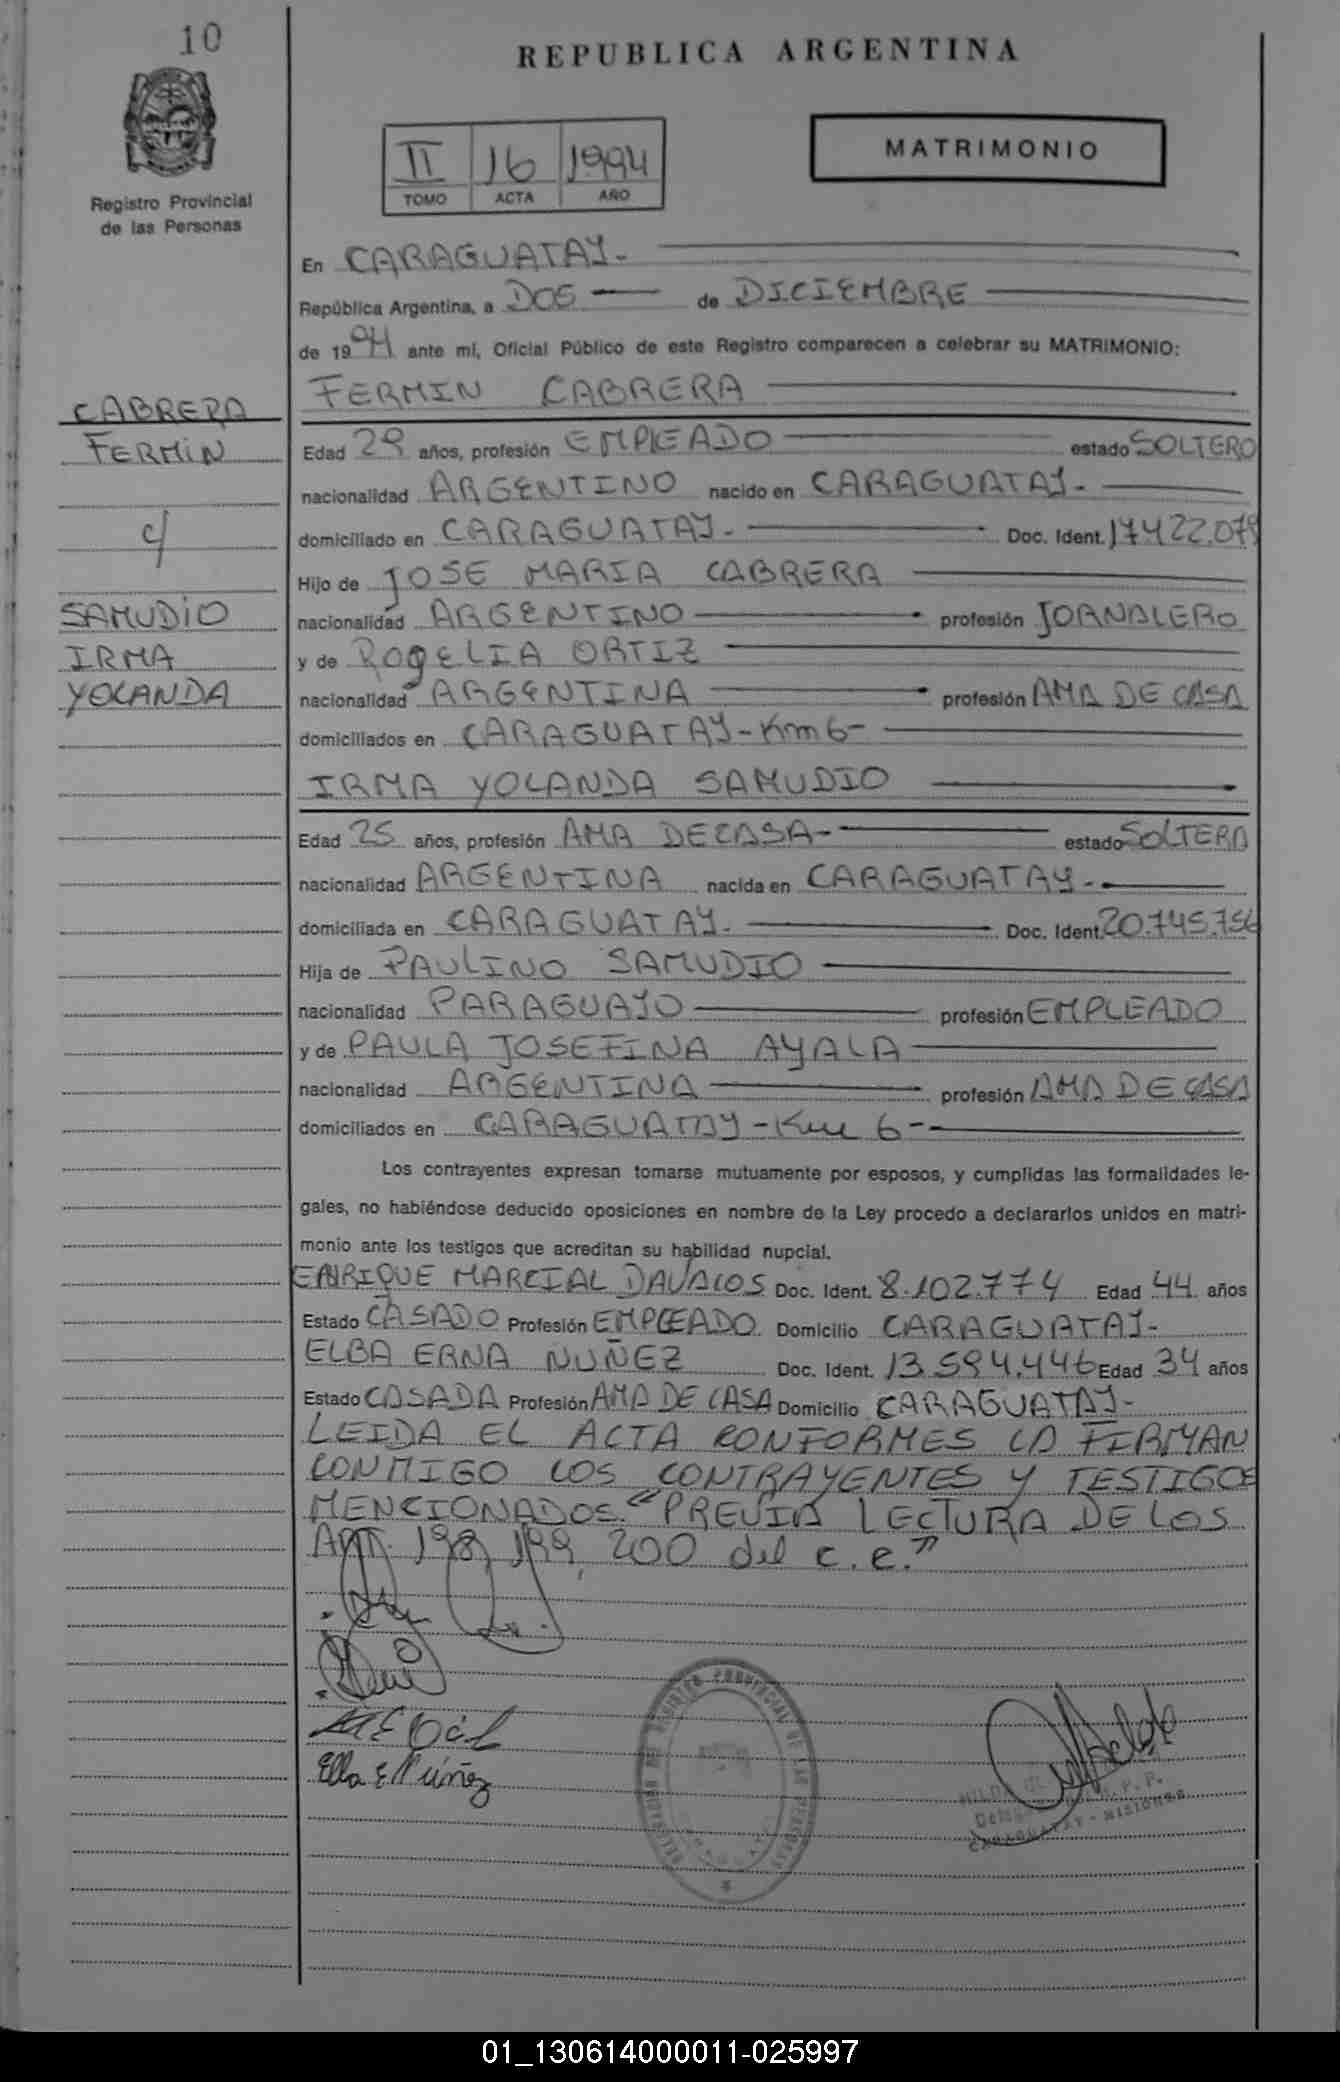 10
REPUBLICA ARGENTINA
II 16 1994
TOMO ACTA AÑO
MATRIMONIO
Registro Provincial
de las Personas
En CARAGUATAY.
República Argentina, a DOS de DICIEMBRE
de 1994 ante mí, Oficial Público de este Registro comparecen a celebrar su MATRIMONIO:
FERMIN CABRERA
CABRERA
FERMIN
c/
SAMUDIO
IRMA
YOLANDA
Edad 29 años, profesión EMPLEADO estado SOLTERO
nacionalidad ARGENTINO nacido en CARAGUATAY.
domiciliado en CARAGUATAY. Doc. Ident. 17422.079
Hijo de JOSE MARIA CABRERA
nacionalidad ARGENTINO profesión JORNALERO
y de ROGELIA ORTIZ
nacionalidad ARGENTINA profesión AMA DE CASA
domiciliados en CARAGUATAY-Km 6-
IRMA YOLANDA SAMUDIO
Edad 25 años, profesión AMA DE CASA- estado SOLTERA
nacionalidad ARGENTINA nacida en CARAGUATAY.
domiciliada en CARAGUATAY. Doc. Ident. 20.745.756
Hija de PAULINO SAMUDIO
nacionalidad PARAGUAYO profesión EMPLEADO
y de PAULA JOSEFINA AYALA
nacionalidad ARGENTINA profesión AMA DE CASA
domiciliados en CARAGUATAY-Km 6-
Los contrayentes expresan tomarse mutuamente por esposos, y cumplidas las formalidades le-
gales, no habiéndose deducido oposiciones en nombre de la Ley procedo a declararlos unidos en matri-
monio ante los testigos que acreditan su habilidad nupcial.
ENRIQUE MARCIAL DAVALOS Doc. Ident. 8.102.774 Edad 44 años
Estado CASADO Profesión EMPLEADO Domicilio CARAGUATAY-
ELBA ERNA NUÑEZ Doc. Ident. 13.594.446 Edad 34 años
Estado CASADA Profesión AMA DE CASA Domicilio CARAGUATAY-
LEIDA EL ACTA CONFORMES LA FIRMAN
CONMIGO LOS CONTRAYENTES Y TESTIGOS
MENCIONADOS. "PREVIA LECTURA DE LOS
ART. 198, 199, 200 del c.c."
Elba E Núñez
CARAGUATAY - MISIONES
01_130614000011-025997